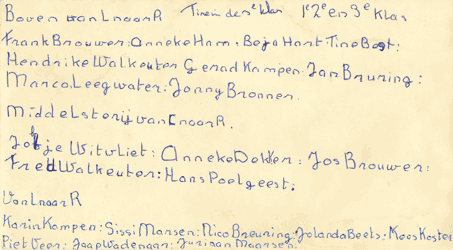 Boven van L naar R Tine in de 2e klas 1e 2e en 3e klas
Frank Brouwer: Anneke Ham, Beja Hart Tine Best:
Hendrike Walkeuter Gerad Kampen: Jan Bruning:
Marco Leegwater: Jonny Bronnen.
Middelsterij van L naar R.
Jotje Witvliet: Anneke Dekker: Jos Brouwer:
Fred Walkeuter: Hans Poelgeest.
Van L naar R
Karin Kampen: Sissi Mansen: Nico Breuning: Jolanda Boets: Koos Koster
Piet Veer: Jaap Wadenaar: Jurjaan Maarsen.